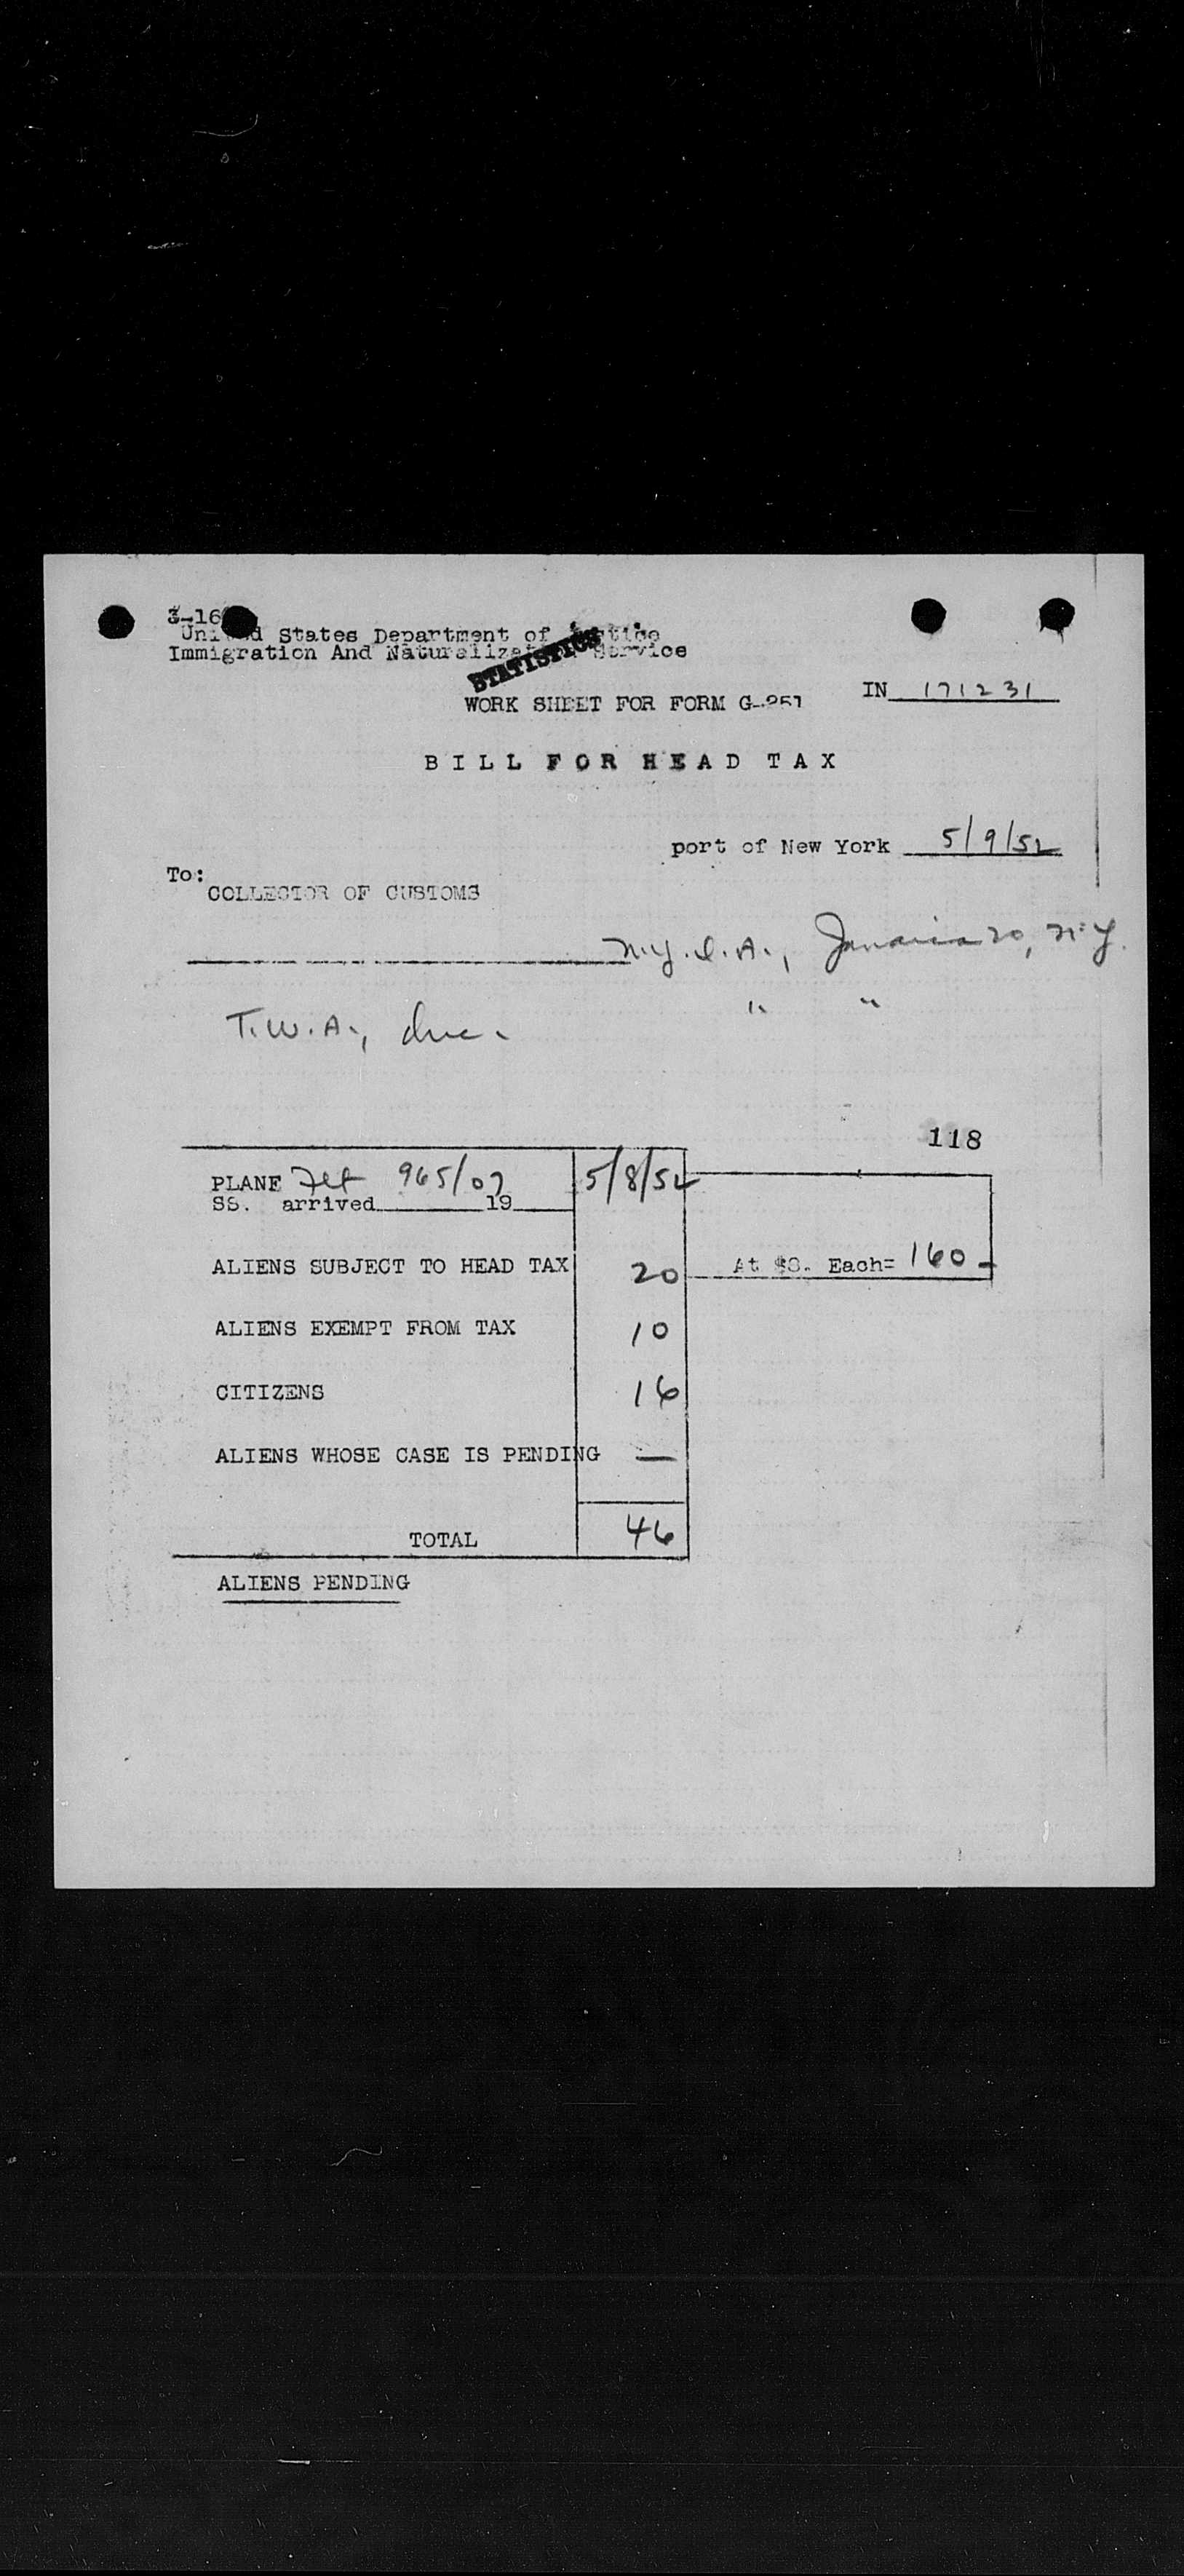 3-16
United States Department of Justice
Immigration And Naturalization Service
STATISTICS
WORK SHEET FOR FORM G-251
IN 171231
BILL FOR HEAD TAX
port of New York 5/9/52
To:
COLLECTOR OF CUSTOMS
N.Y.I.A., Jamaica 20, N.Y.
T.W.A., Inc. " "
118
PLANE Flt 965/07 5/8/52
SS. arrived 19
ALIENS SUBJECT TO HEAD TAX 20 At $8. Each= 160-
ALIENS EXEMPT FROM TAX 10
CITIZENS 16
ALIENS WHOSE CASE IS PENDING —
TOTAL 46
ALIENS PENDING